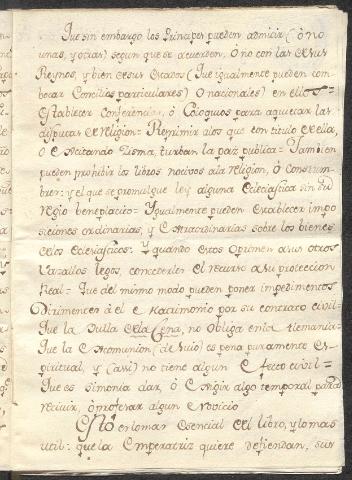 Que sin embargo los Principes pueden admitir (ò no
unas, y otras) segun que se acuerden, ò no con las desus
Reynos, y bien desus Estados (Que igualmente pueden com-
bocar Concilios particulares) ò nacionales) en ellos =
Establecer Conferencias, ò Coloquios para aquietar las
disputas de religion = Reprimir alos que con titulo de ella,
ò Excitando Zisma, turban la paz publica = Tambien
pueden prohibir los libros nocivos ala religion, ò Costum-
bren: y el que se promulgue ley alguna Eclesiastica sin su
regio beneplacito = Ygualmente pueden establecer impo-
siciones ordinarias, y Extraordinarias sobre los bienes
delos Eclesiasticos. Y quando estos oprimen asus otros
Vasallos legos, concederles el recurso asu proteccion
Real = Que del mismo modo pueden poner impedimentos
Dirimentes à el Matrimonio por su contrato civil =
Que la Bulla dela Cena, no obliga enla Alemania =
Que la Excomunion (de suio) es pena puramente Es-
piritual, y (assi) no tiene algun Efecto civil =
Que es simonia dar, ò Exigir algo temporal para
recivir, ò profesar algun Novicio
Esto es lo mas esencial del libro, y lo mas
util: que la Emperatriz quiere defiendan, sus